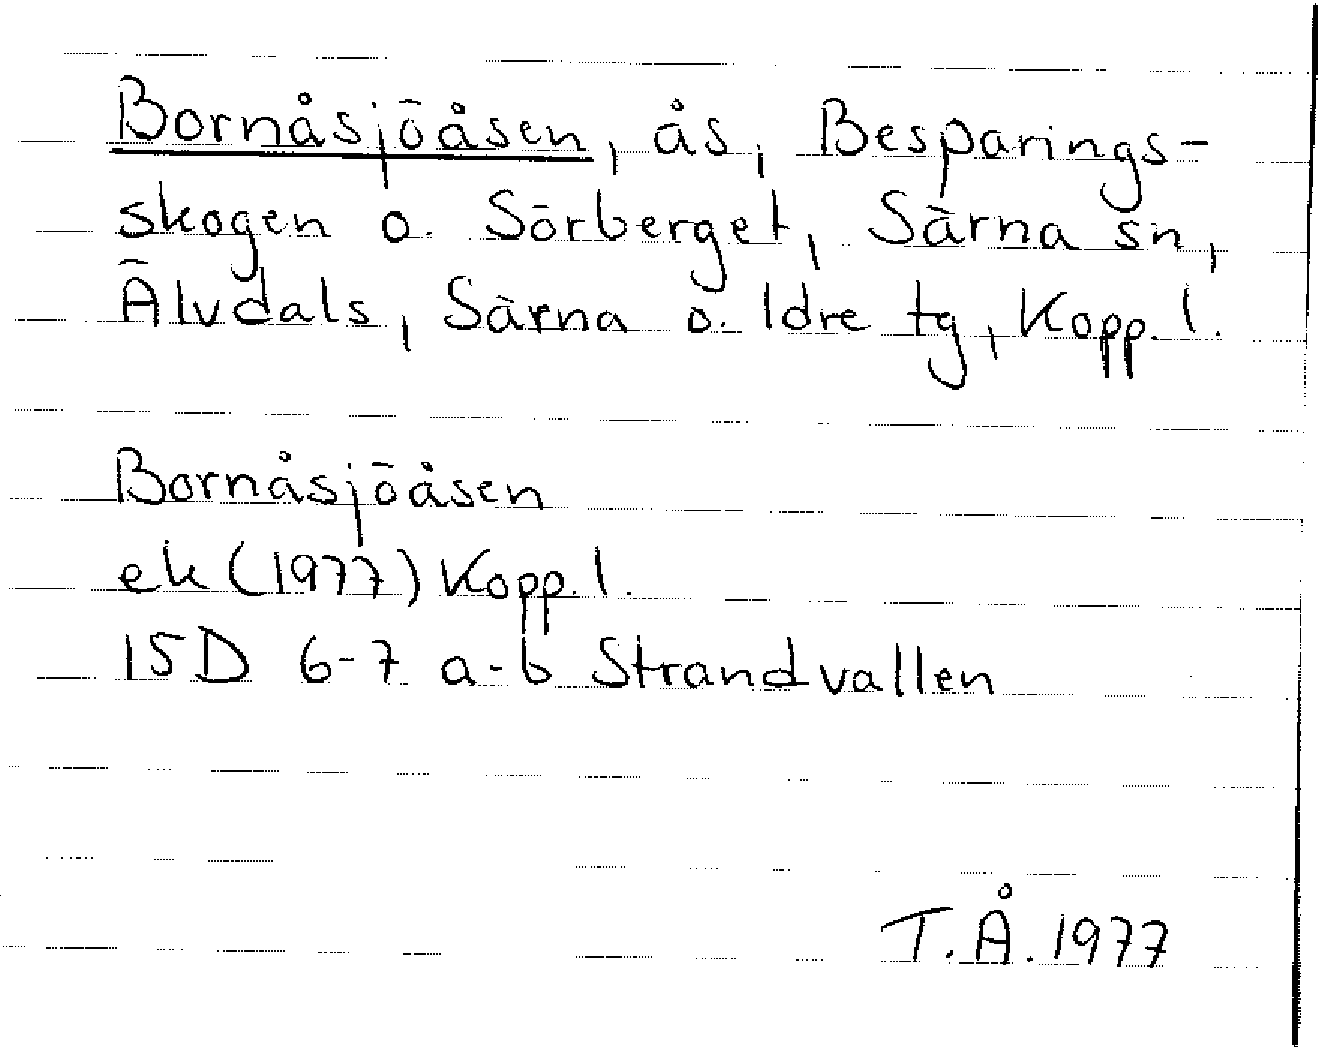 Bornåsjöåsen, ås, Besparings-
skogen o. Sörberget, Särna sn,
Älvdals, Särna o. Idre tg, Kopp. l.
Bornåsjöåsen
ek (1977) Kopp. l.
15D 6-7 a-b Strandvallen
T.Å. 1977